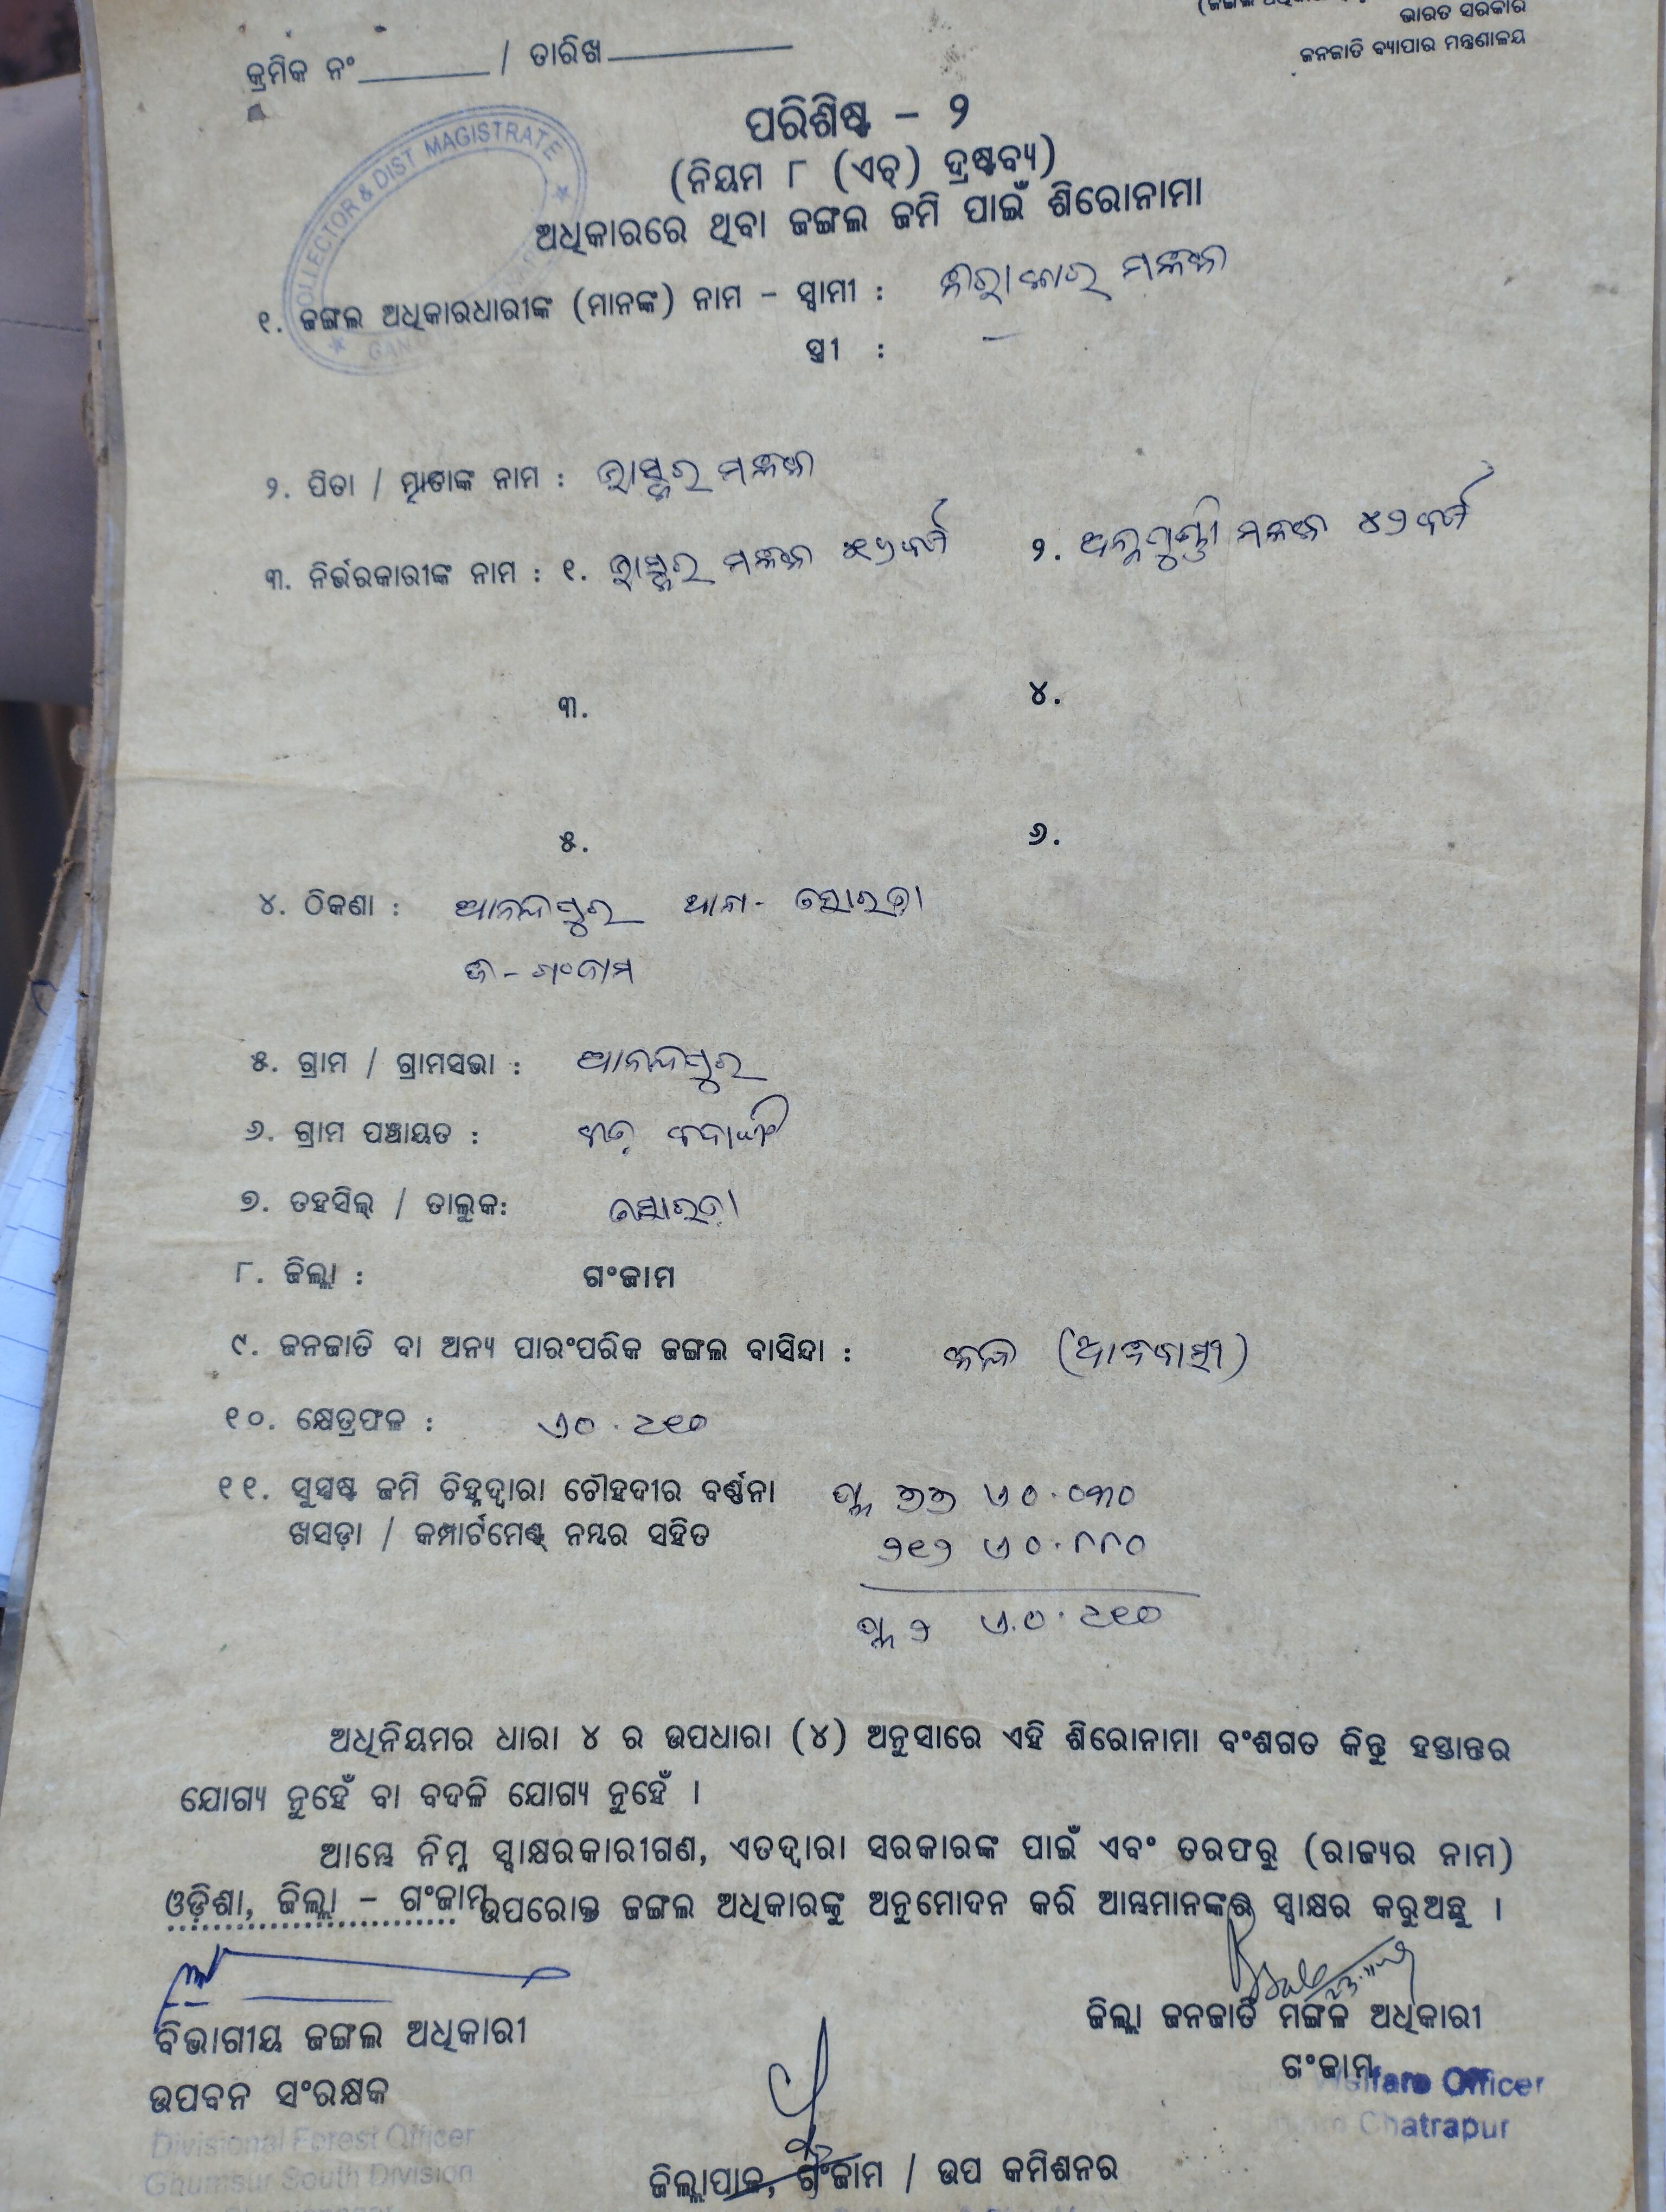 ଭାରତ ସରକାର
ଜନଜାତି ବ୍ୟାପାର ମନ୍ତ୍ରଣାଳୟ
କ୍ରମିକ ନଂ / ତାରିଖ
ପରିଶିଷ୍ଟ – ୨
(ନିୟମ ୮ (ଏଚ୍) ଦ୍ରଷ୍ଟବ୍ୟ)
ଅଧିକାରରେ ଥିବା ଜଙ୍ଗଲ ଜମି ପାଇଁ ଶିରୋନାମା
COLLECTOR & DIST MAGISTRATE
୧. ଜଙ୍ଗଲ ଅଧିକାରଧାରୀଙ୍କ (ମାନଙ୍କ) ନାମ – ସ୍ଵାମୀ :
ସ୍ତ୍ରୀ : –
୨. ପିତା / ମାତାଙ୍କ ନାମ : ଭାସ୍କର
୩. ନିର୍ଭରକାରୀଙ୍କ ନାମ : ୧. ଭାସ୍କର ୨.
୩. ୪.
୫. ୬.
୪. ଠିକଣା : ଆନନ୍ଦପୁର ଥାନା - ସୋରଡ଼ା
ଜି - ଗଂଜାମ
୫. ଗ୍ରାମ / ଗ୍ରାମସଭା : ଆନନ୍ଦପୁର
୬. ଗ୍ରାମ ପଞ୍ଚାୟତ :
୭. ତହସିଲ୍ / ତାଲୁକ: ସୋରଡ଼ା
୮. ଜିଲ୍ଲା : ଗଂଜାମ
୯. ଜନଜାତି ବା ଅନ୍ୟ ପାରଂପରିକ ଜଙ୍ଗଲ ବାସିନ୍ଦା : କନ୍ଧ (ଆଦିବାସୀ)
୧୦. କ୍ଷେତ୍ରଫଳ : ଏ୦.୯୧୦
୧୧. ସୁସ୍ପଷ୍ଟ ଜମି ଚିହ୍ନଦ୍ୱାରା ଚୌହଦୀର ବର୍ଣ୍ଣନା ପ୍ଲ ୭୭ ଏ୦.୦୩୦
ଖସଡ଼ା / କମ୍ପାର୍ଟମେଣ୍ଟ୍ ନମ୍ବର ସହିତ ୨୧୨ ଏ୦.୮୮୦
ପ୍ଲ ୨ ଏ.୦.୯୧୦
ଅଧିନିୟମର ଧାରା ୪ ର ଉପଧାରା (୪) ଅନୁସାରେ ଏହି ଶିରୋନାମା ବଂଶଗତ କିନ୍ତୁ ହସ୍ତାନ୍ତର
ଯୋଗ୍ୟ ନୁହେଁ ବା ବଦଳି ଯୋଗ୍ୟ ନୁହେଁ ।
ଆମ୍ଭେ ନିମ୍ନ ସ୍ୱାକ୍ଷରକାରୀଗଣ, ଏତଦ୍ୱାରା ସରକାରଙ୍କ ପାଇଁ ଏବଂ ତରଫରୁ (ରାଜ୍ୟର ନାମ)
ଓଡ଼ିଶା, ଜିଲ୍ଲା – ଗଂଜାମ ଉପରୋକ୍ତ ଜଙ୍ଗଲ ଅଧିକାରଙ୍କୁ ଅନୁମୋଦନ କରି ଆମ୍ଭମାନଙ୍କର ସ୍ୱାକ୍ଷର କରୁଅଛୁ ।
ବିଭାଗୀୟ ଜଙ୍ଗଲ ଅଧିକାରୀ
ଉପବନ ସଂରକ୍ଷକ
Divisional Forest Officer
Ghumsur South Division
ଜିଲ୍ଲା ଜନଜାତି ମଙ୍ଗଳ ଅଧିକାରୀ
ଗଂଜାମ
Welfare Officer
Chatrapur
ଜିଲ୍ଲାପାଳ, ଗଂଜାମ / ଉପ କମିଶନର